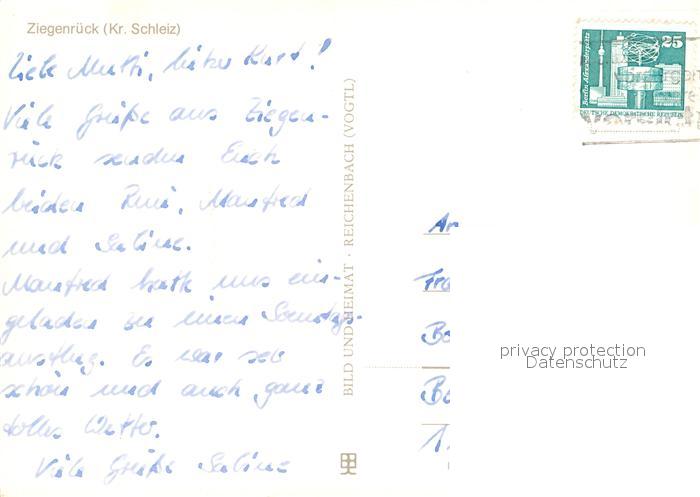 Ziegenrück (Kr. Schleiz)
Liebe Mutti, lieber Kurt!
Viele Grüße aus Ziegen-
rück senden Euch
beiden Rni, Manfred
und Sabine.
Manfred hatte uns ein-
geladen zu einem Sonntags-
ausflug. Es war sehr
schön und auch ganz
tolles Wetter.
Viele Grüße Sabine
BILD UND HEIMAT · REICHENBACH (VOGTL)
25
Berlin, Alexanderplatz
DEUTSCHE DEMOKRATISCHE REPUBLIK
An
Fra
privacy protection
Datenschutz